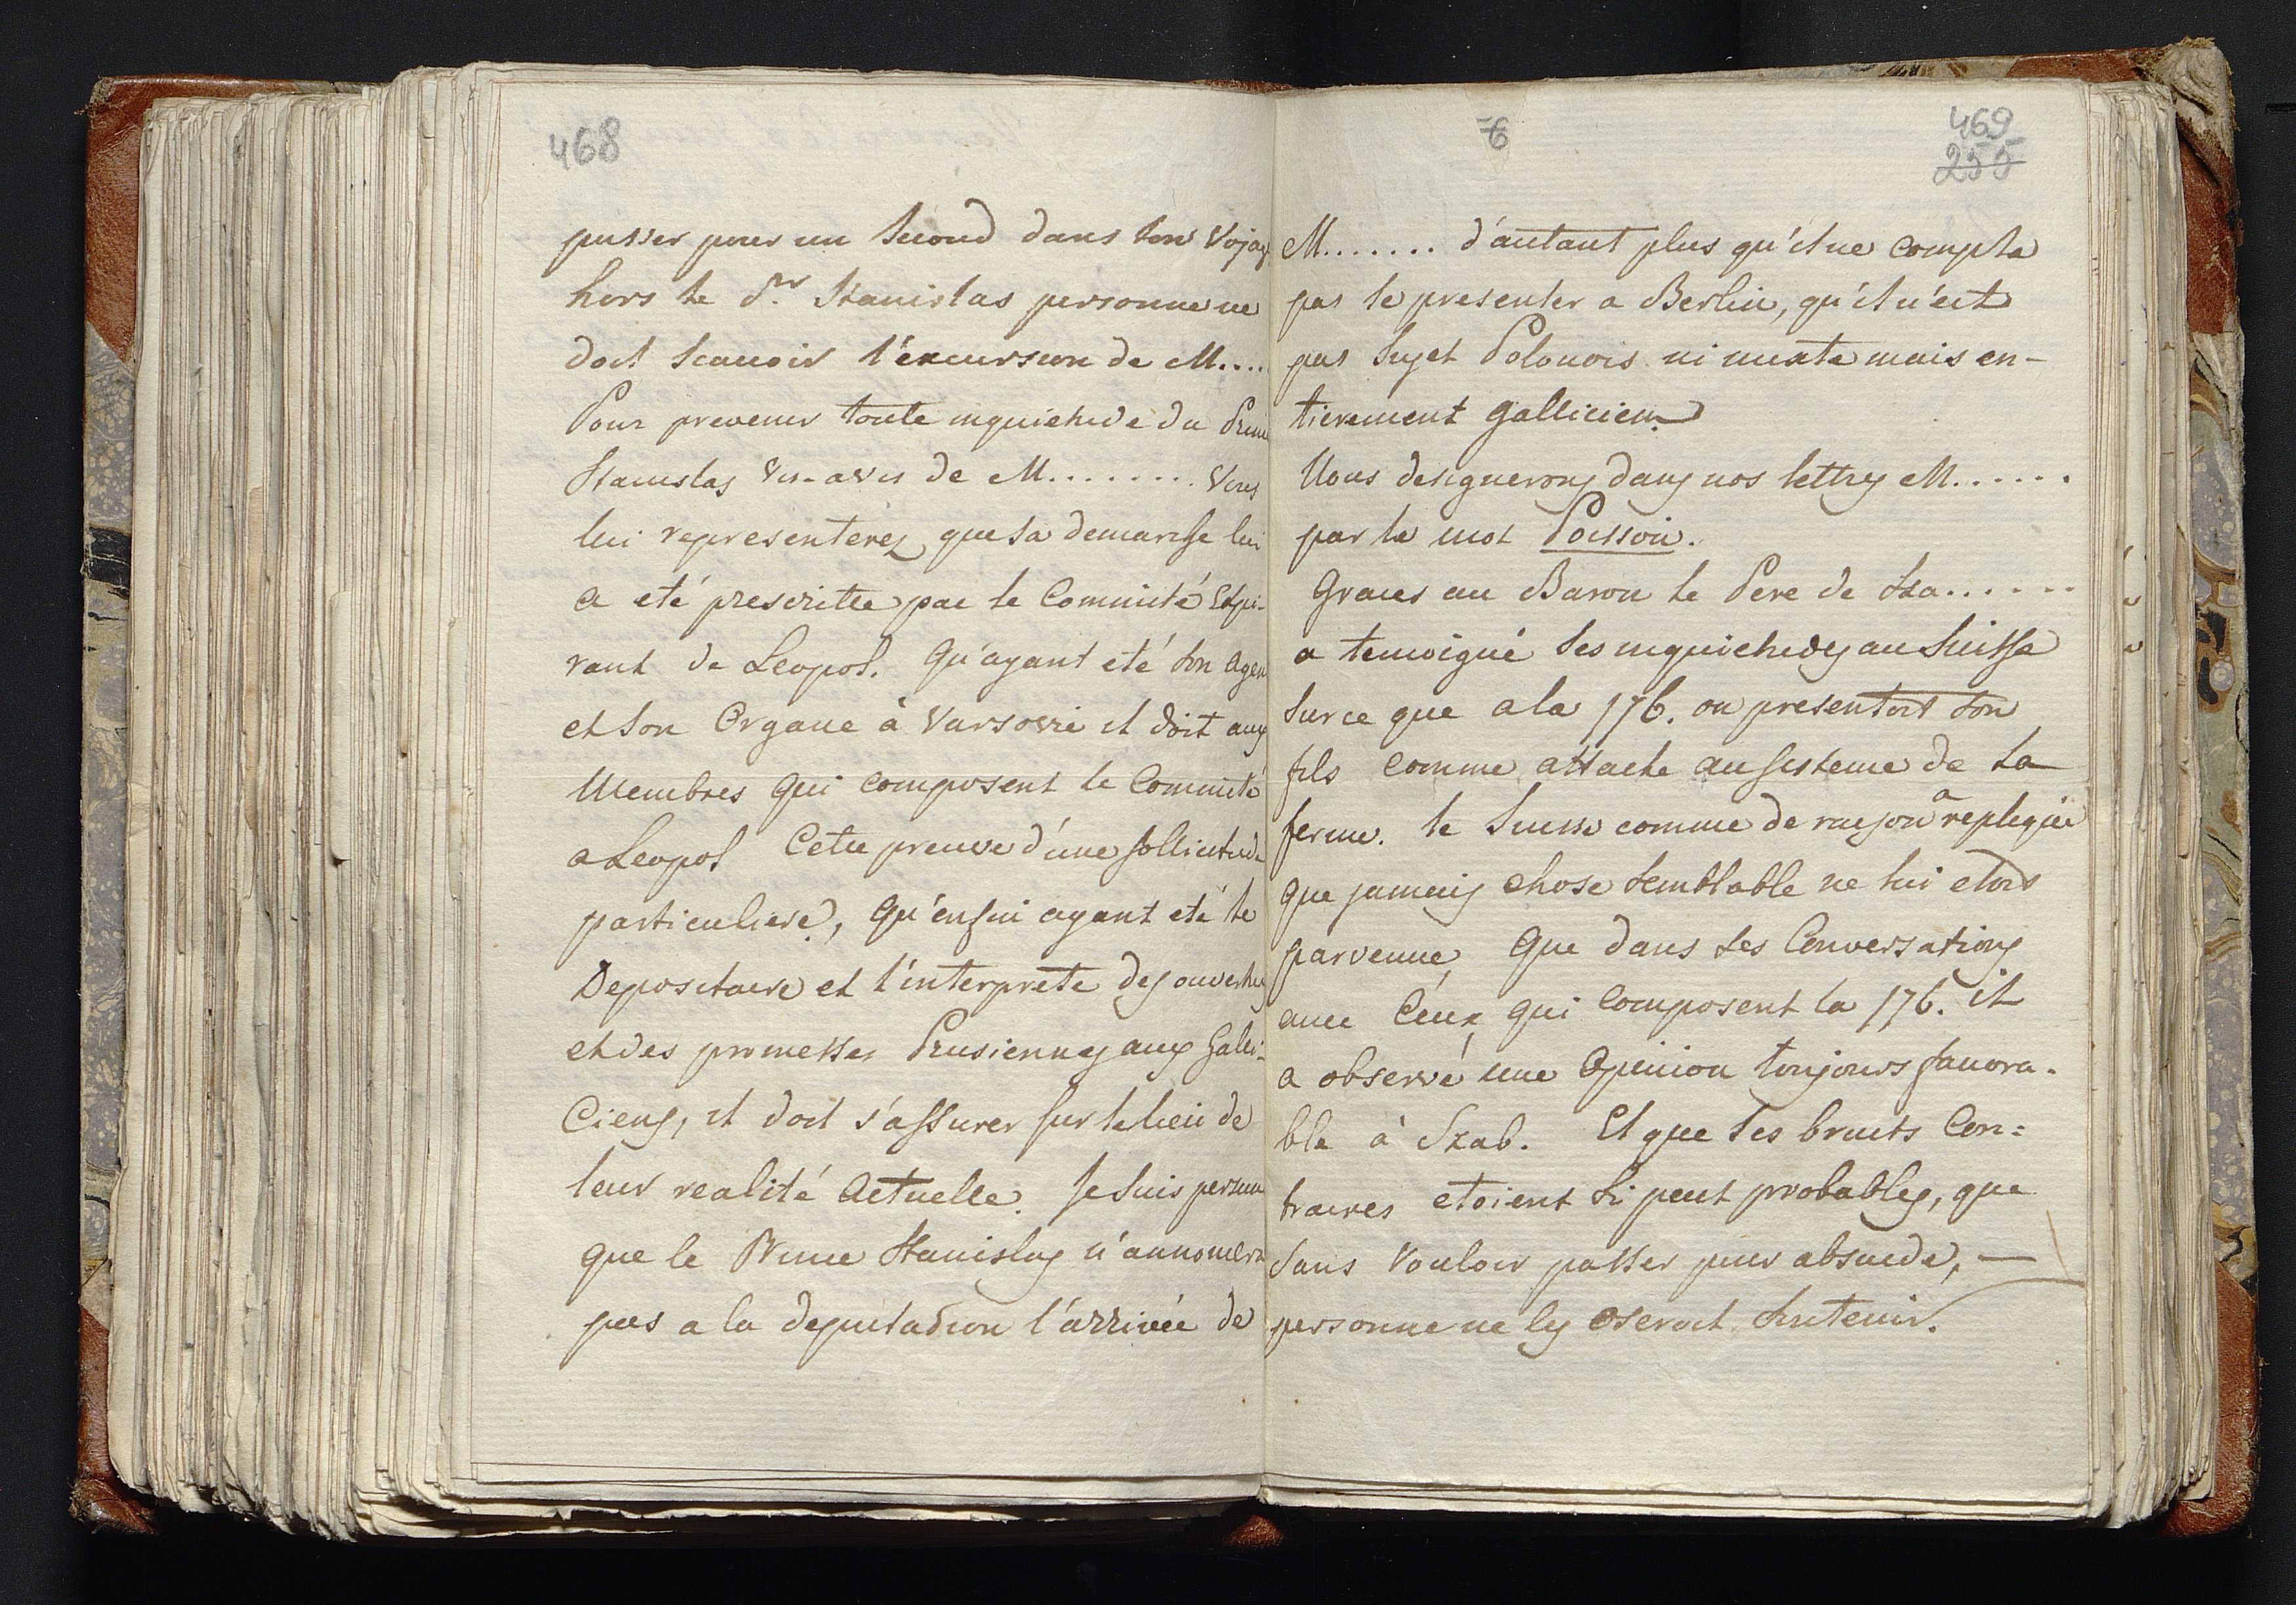 468
passer pour un second dans son Vojag
hors le Sr. Stanislas personne ne
doit scauoir l'excursion de M....
Pour prevenir toute inquietude du Prin
Stanislas vis-a-vis de M........ Vous
lui representerez que sa demarche lui
a eté prescritte par le Commité
rant de Leopol. Qu'ayant eté son Agen
et son Organe à Varsovie il doit aux
Membres qui composent le Commité
a Leopol Cette preuve d'une sollicitude
particuliere, Qu'enfin ayant eté le
Depositaire et l'interprete des ouvertu
et des promesses Prusiennes aux Galli-
Ciens, il doit s'assurer sur le lieu de
leur realité Actuelle. Je suis persua
que le Prince Stanislas n'annoncera
pas a la deputation l'arrivée de
6
469
255
M....... d'autant plus qu'il ne compte
pas se presenter a Berlin, qu'il n'est
pas sujet Polonois ni mixte mais en-
tierement Gallicien.
Nous designerons dans nos lettres M......
par le mot Poisson.
Graces au Baron le Pere de Sza......
a temoigné ses inquietudes au Suisse
sur ce que a la 176. on presentoit son
fils comme attaché au sisteme de la
ferme. le Suisse comme de raison a repliqué
que jamais chose semblable ne lui etoit
parvenue, Que dans ses Conversations
avec Ceux qui composent la 176. il
a observé une Opinion toujours fauora-
ble à Szab. Et que les bruits Con=
traires etoient si peut probables, que
sans Vouloir passer pour absurde, —
personne ne les oseroit soutenir.